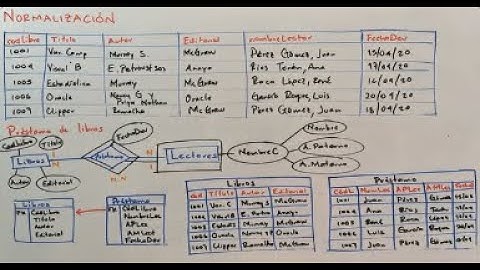 NORMALIZACIÓN
codLibro Titulo Autor Editorial nombreLector FechaDev
1001 Var. Comp Murray S. McGraw Pérez Gómez, Juan 15/04/20
1004 Visual B E. Petroustsos Anaya Ríos Terán, Ana 17/04/20
1005 Estadística Murray McGraw Roca López, René 16/04/20
1006 Oracle Nancy G y Priya Nathan Oracle García Roque, Luis 20/04/20
1007 Clipper Ramalho McGraw Pérez Gómez, Juan 18/04/20
Préstamo de libros
CodLibro Titulo FechaDev Nombre
Libros N Préstamo N Lectores NombreC A. Paterno
Autor Editorial N:N A. Materno
Libros
PK CodLibro
Titulo
Autor
Editorial
Préstamo
FK CodLibro
NombreLec
APLec
AMLect
FechaDev
Libros
Cod Titulo Autor Editorial
1001 Var. C Murray S McGraw
1004 Visual B E. Petrou Anaya
1005 Estadis Murray McGraw
1006 Oracle Nancy y P Oracle
1007 Clipper Ramalho McGraw
Préstamo
CodL NombLec APLec AMLec
1001 Juan Pérez Gómez
1004 Ana Ríos Terán
1005 René Roca López
1006 Luis García Roque
1007 Juan Pérez Gómez